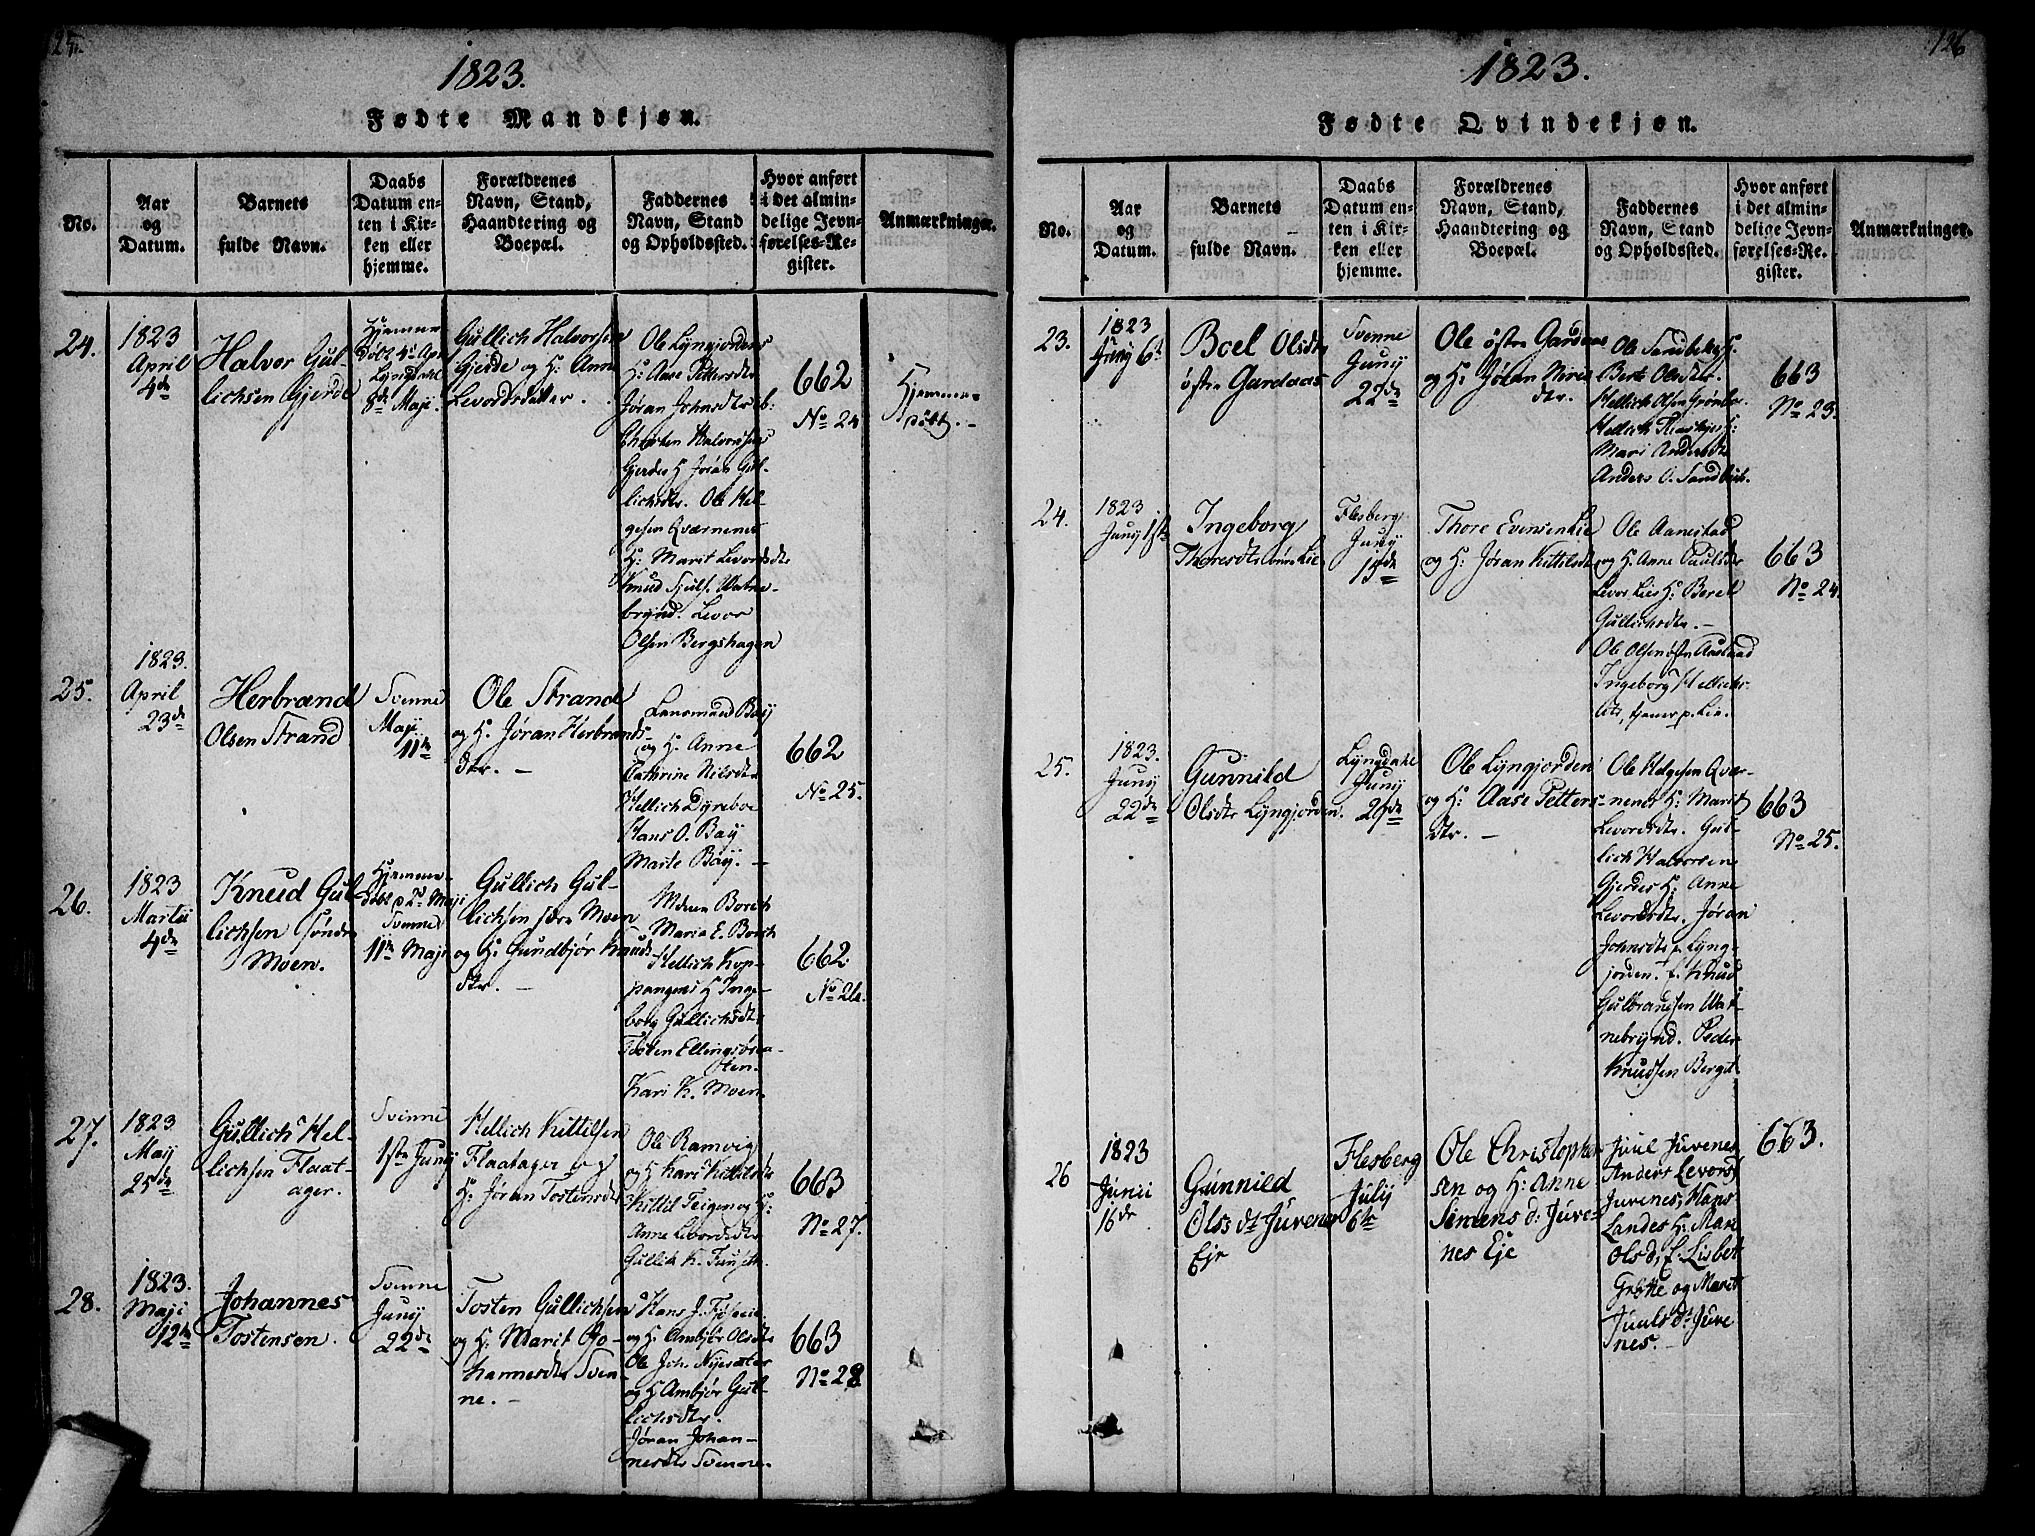 1823.
Fødte Mandkjøn.
No.
Aar
og
Datum.
Barnets
fulde Navn.
Daabs
Datum en-
ten i Kir-
ken eller
hjemme.
Forældrenes
Navn, Stand,
Haandtering og
Boepæl.
Faddernes
Navn, Stand
og Opholdssted.
Hvor anført
i det almin-
delige Jevn-
førelses-Re-
gister.
Anmærkninger.
24.
1823
April
4de
Halvor Gul-
lichsen Gjerde
Hjemme
døbt 4de Apr
Lyngdal
8de Maji.
Gullich Halvorsen
Gjerde og H: Anne
Levordsdatter.
Ole Lyngjordens
H: Aase Pettersdtr
Jøran Johnsdtr
Halvorsens
Gjerdes H Jøran Gul-
lichsdtr. Ole Hel-
gesen Qværnenes
H: Marit Levordsdtr
Knud
brynd. Levor
Olsen Bergshagen
662
No 24
Hjemme-
døbt.
25.
1823.
April
23de
Herbrand
Olsen Strand
Svenne
Maji
11te
Ole Strand
og H. Jøran Herbrands-
dtr. -
Lensmand Bay
og H. Anne
Cathrine Nilsdtr
Hellich Dyreboe
Hans O. Bay
Marte Bay. -
662
No 25.
26.
1823
Martii
4de
Knud Gul-
lichsen søndre
Moen.
Hjemme-
døbt
Svenne
11te Maji
Gullich Gul-
lichsen søre Moen
og H: Gundbjør Knuds
dtr. -
Borch
Maria E. Borch
Hellich Kop-
pangens H Inge-
borg Gullichsdtr
Tosten Ellingsøre-
sten.
Kari K. Moen.
662
No 26.
27.
1823
May
25de
Gullich Hel-
lichsen Flaat-
ager.
Svenne
1ste Juny
Hellich Kittilsen
Flaatager og
H: Jøran Tostensdtr
Ole Ramvig
og H Kari Kittilsdtr
Kittil Teigen og H:
Anne Levordsdtr
Gullich K.
663
No 27.
28.
1823.
Maji
12te
Johannes
Tostensen.
Svenne
Juny
22de
Tosten Gullichsen
og H: Marit Jo-
hannesdtr Sven-
ne. -
Hans J.
og H: Ambjør Olsdtr
Ole Joh. Nysæter
og H Ambjør Gul-
lichsdtr.
Jøran Johan-
nesdtr Svenne.
663
No 28
126
1823.
Fødte Qvindekjøn.
No.
Aar
og
Datum.
Barnets
fulde Navn.
Daabs
Datum en-
ten i Kir-
ken eller
hjemme.
Forældrenes
Navn, Stand,
Haandtering og
Boepæl.
Faddernes
Navn, Stand
og Opholdssted.
Hvor anført
i det almin-
delige Jevn-
førelses-Re-
gister.
Anmærkninger.
23.
1823
Juny 6te
Boel Olsdtr
østre Gardaas
Svenne
Juny
22de
Ole østre Gardaas
og H: Jøran Nires
dtr.
Ole Sandbeks H.
Berit Olsdtr.
Hellich Olsen
Hellich
Mari Andersdtr
Anders O. Sandbek.
663
No 23.
24.
1823
Juny 1ste
Ingeborg
Thoresdtr Lie
Flesberg
Juny
15de
Thore Evensen Lie
og H: Jøran Kittilsdtr
Ole Aanestad
og H. Anne Paulsdtr
Levor Lies H: Beret
Gullichsdtr. -
Ole Olsen østre Aaslaad
Ingeborg Hellichs-
dtr, tjener p. Lie.
663
No 24.
25.
1823.
Juny
22de
Gunnild
Olsdtr Lyngjorden.
Lyngdahl
Juny
29de
Ole Lyngjorden
og H: Aase Petters-
dtr. -
Ole Helgesen Qvær-
nenes H: Marit
Levordsdtr. Gul-
lich Halvorsens
Gjerdes H: Anne
Levordsdtr. Jøran
Johnsdtr p. Lyng-
jorden. f. Knud
Gulbrandsen Wat-
nebrynd. Peder
Knudsen Berget
663
No 25.
26
1823
Junii
16de
Gunnild
Olsdtr Juvenes
Eje
Flesberg
July
6te
Ole Christopher
sen og H: Anne
Simens d: Juve-
nes Eje
Juul Juvenes
Anders Levords
Juvenes, Hans
Landes H: Mari
Olsd, f. Lisbet
Grøtte og Marit
Juuls dtr Juve
nes. -
663.